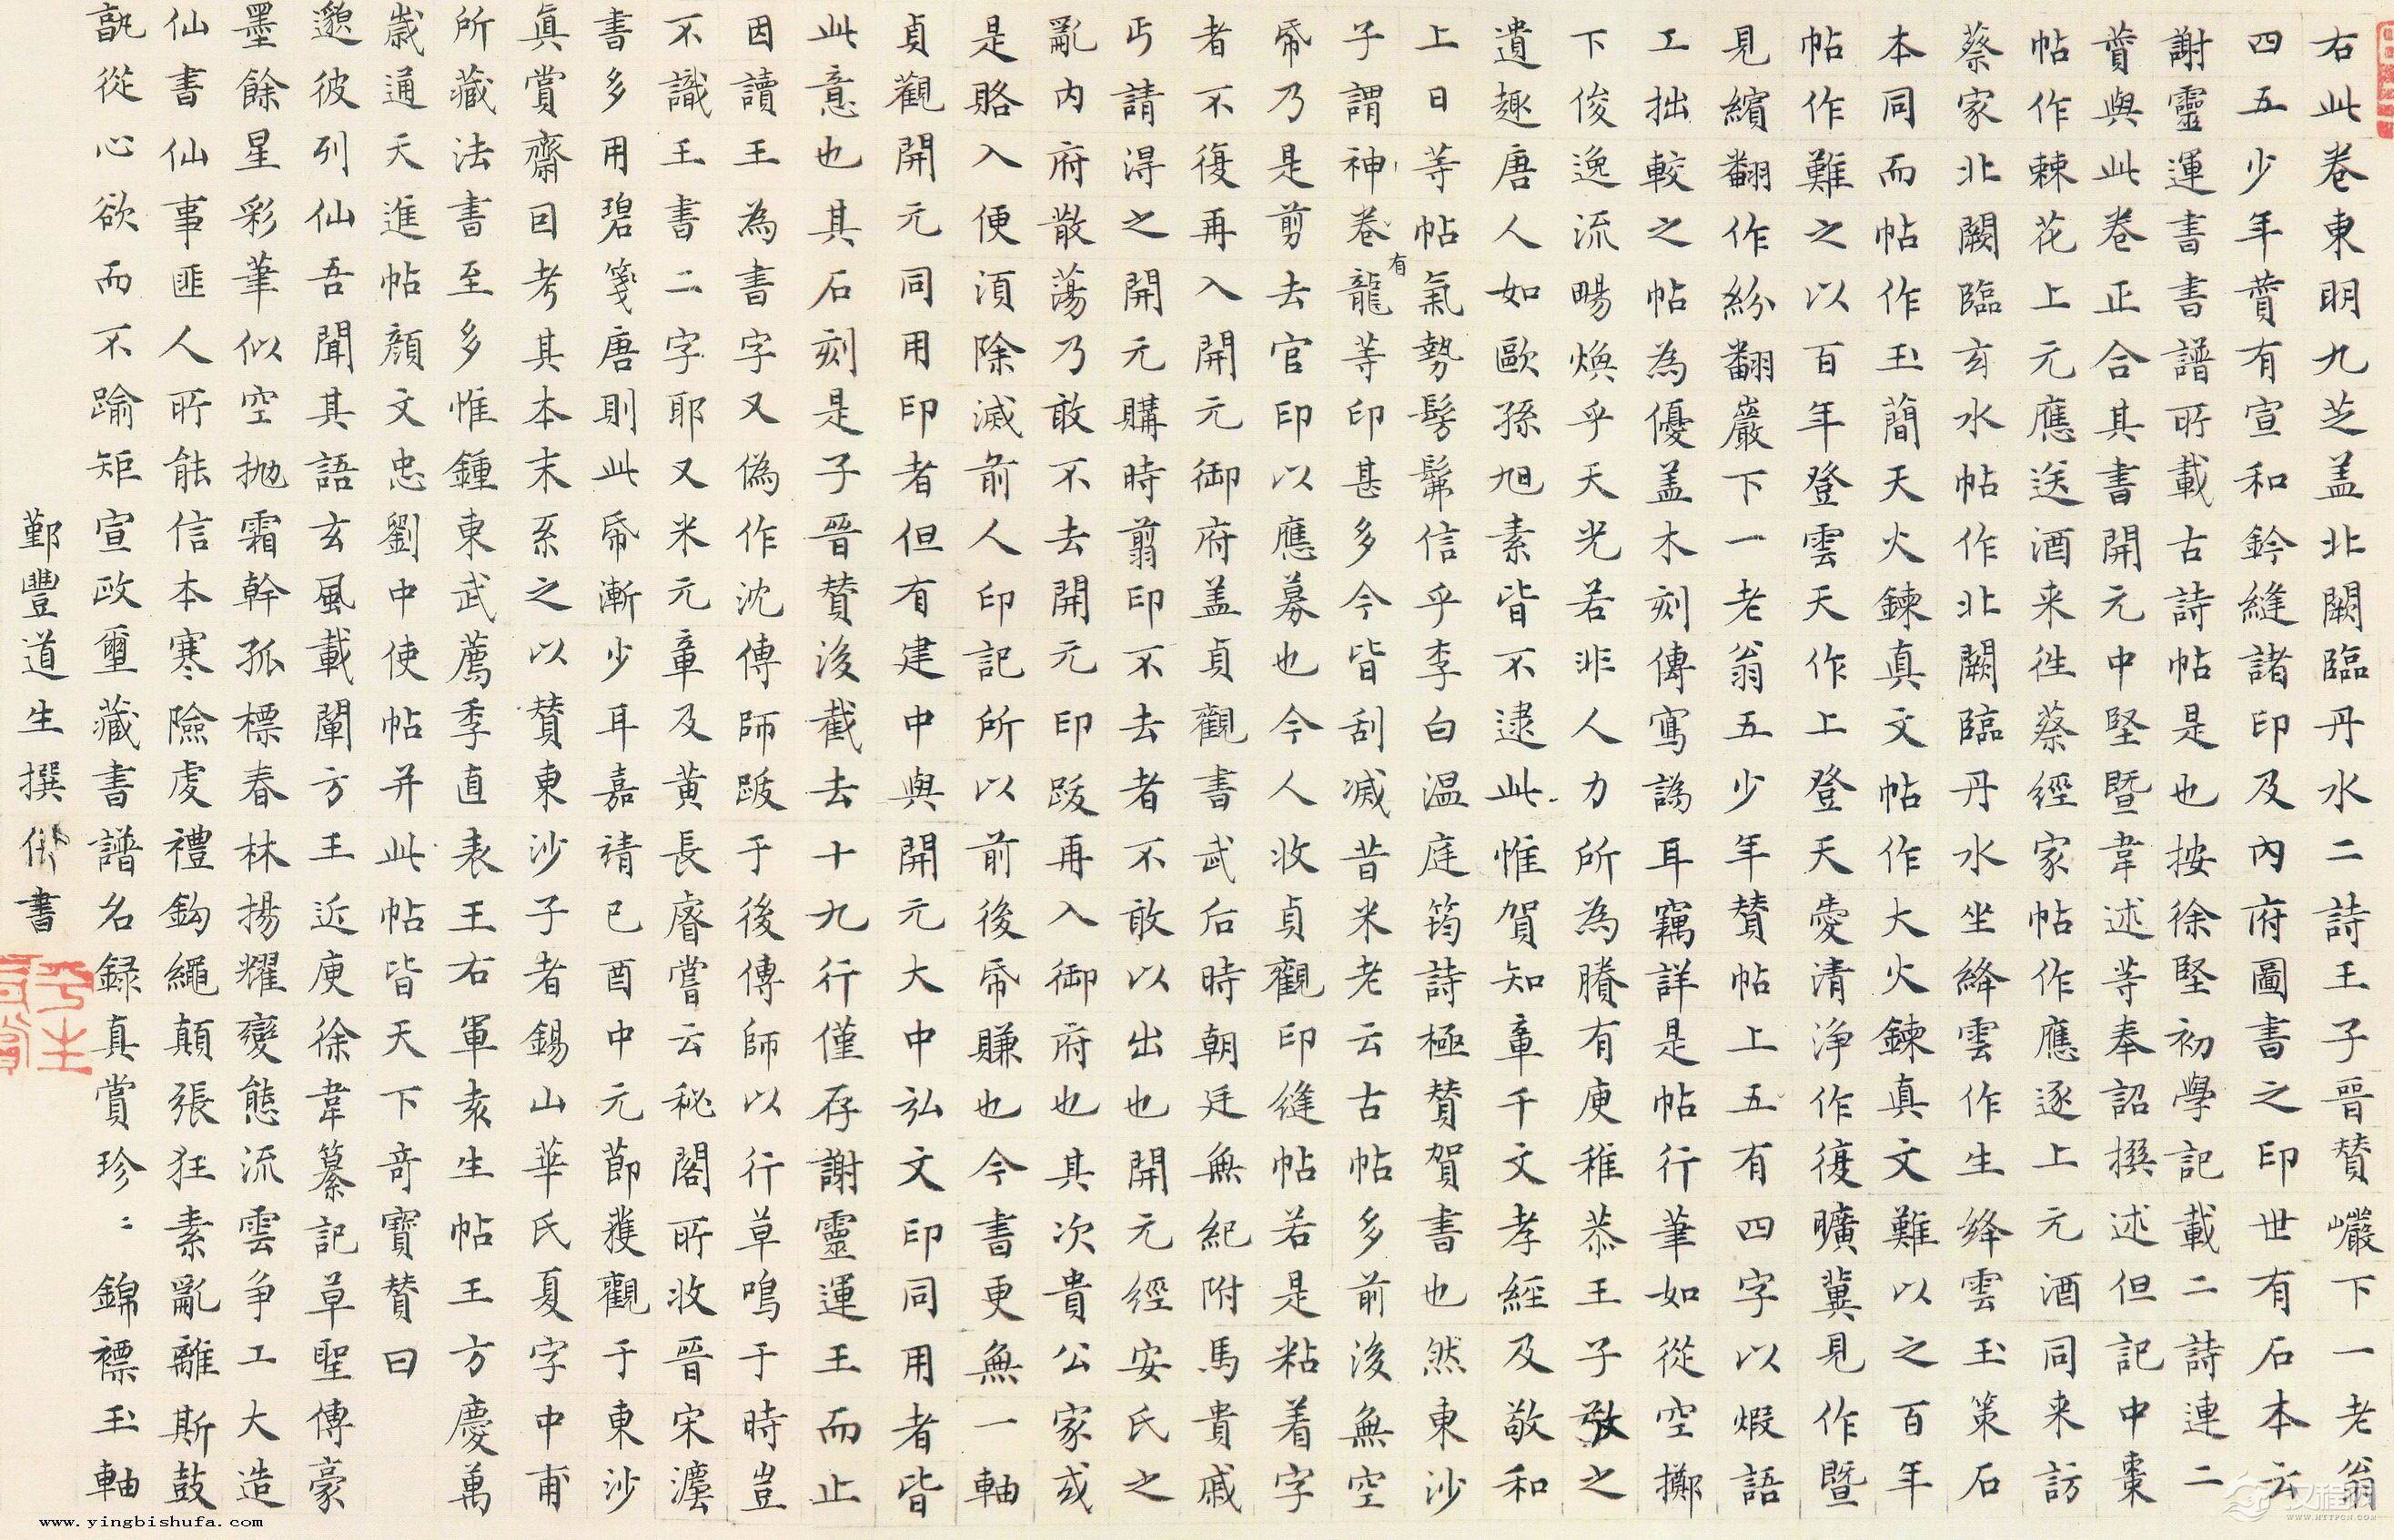 右此卷東明九芝盖北闕臨丹水二詩王子晉贊巗下一老翁
四五少年贊有宣和鈐縫諸印及內府圖書之印世有石本云
謝靈運書書譜所載古詩帖是也按徐堅初學記載二詩連二
賛與此卷正合其書開元中堅暨韋述等奉詔撰述但記中棗
帖作棘花上元應送酒来徃蔡經家帖作應逐上元酒同来訪
蔡家北闕臨玄水帖作北闕臨丹水坐絳雲作生絳雲玉策石
本同而帖作玉蕳天火鍊真文帖作大火鍊真文難以之百年
帖作難之以百年登雲天作上登天愛清淨作復曠冀見作暨
見繽翻作紛翻巖下一老翁五少年贊帖上五有四字以煆語
工拙較之帖為優盖木刻傳寫譌耳竊詳是帖行筆如從空擲
下俊逸流暢煥乎天光若非人力所為賸有庾稚恭王子敬之
遺趣唐人如歐孫旭素皆不逮此惟賀知章千文孝經及敬和
上日等帖氣勢髣髴信乎李白温庭筠詩極賛賀書也然東沙
子謂神卷有龍等印甚多今皆刮滅昔米老云古帖多前後無空
帋乃是剪去官印以應募也今人收貞觀印縫帖若是粘着字
者不復再入開元御府盖貞觀書武后時朝廷無紀附馬貴戚
丐請得之開元購時翦印不去者不敢以出也開元經安氏之
亂內府散蕩乃敢不去開元印跋再入御府也其次貴公家或
是賂入便須除滅前人印記所以前後帋賺也今書更無一軸
貞觀開元同用印者但有建中與開元大中弘文印同用者皆
此意也其石刻是子晉賛後截去十九行僅存謝靈運王而止
因讀王為書字又偽作沈傳師跋于後傳師以行草鳴于時豈
不識王書二字耶又米元章及黃長睿嘗云秘閣所收晉宋灋
書多用碧箋唐則此帋漸少耳嘉靖己酉中元節獲觀于東沙
真賞齋因考其本末系之以賛東沙子者錫山華氏夏字中甫
所藏法書至多惟鍾東武薦季直表王右軍袁生帖王方慶萬
歲通天進帖顏文忠劉中使帖并此帖皆天下竒寶賛曰
邈彼列仙吾聞其語玄風載闡方王近庾徐韋纂記草聖傳豪
墨餘星彩筆似空抛霜幹孤標春林揚耀變態流雲争工大造
仙書仙事匪人所能信本寒險虔禮鈎繩顛張狂素亂離斯鼓
孰從心欲而不踰矩宣政璽藏書譜名録真賞珍〻錦褾玉軸
鄞豐道生撰併書
www.yingbishufa.com
WWW.HTTPCN.COM